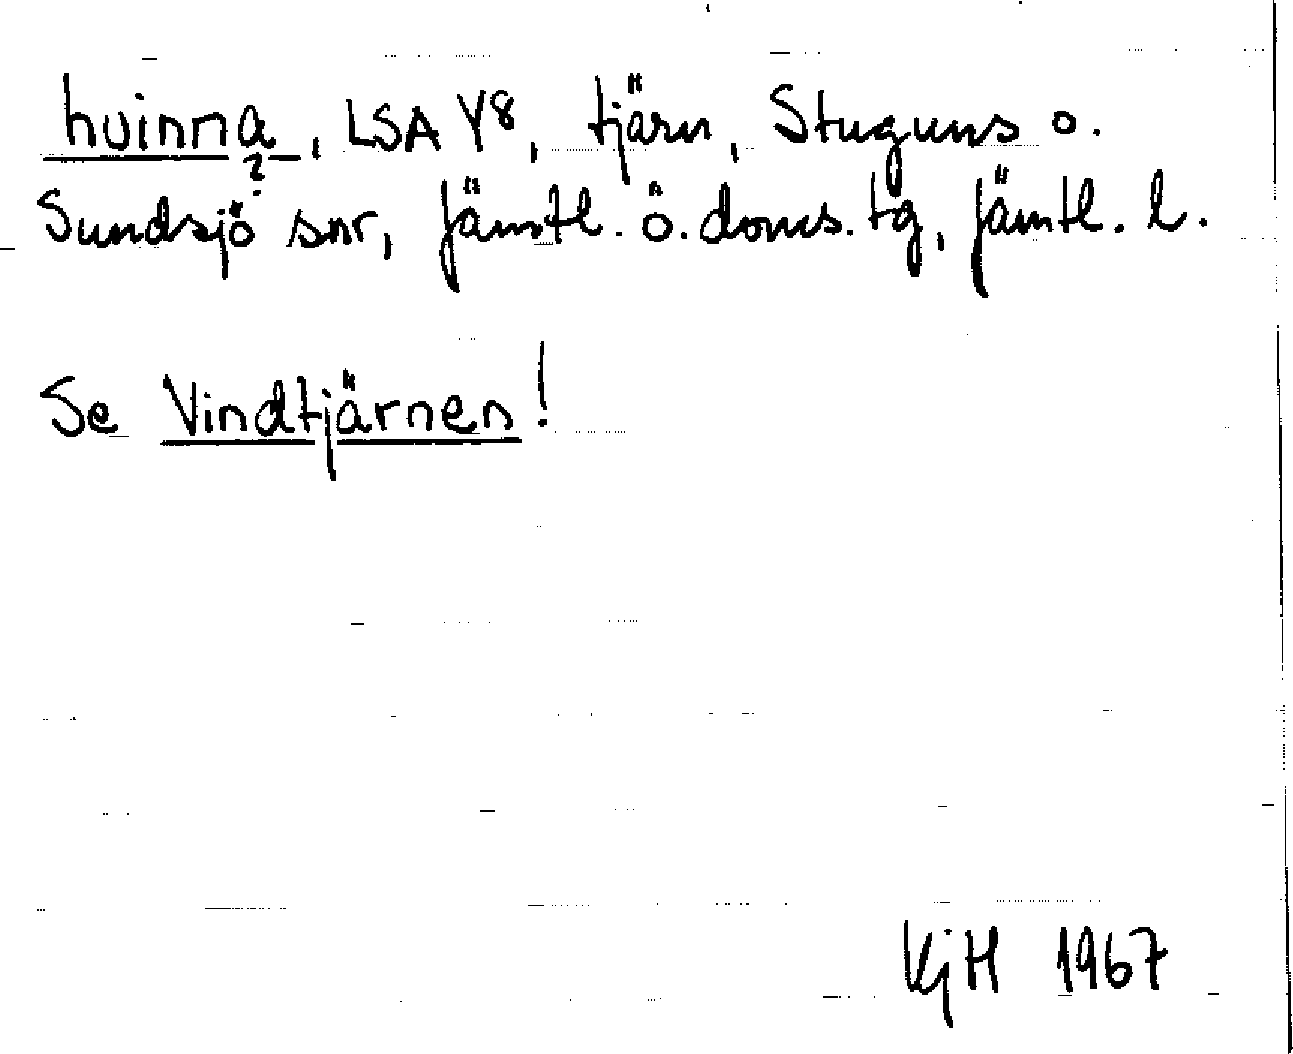 huinna, LSA Y8, tjärn, Stuguns o.
?
Sundsjö snr, Jämtl. ö. doms. tg, Jämtl. l.
Se Vindtjärnen!
KjH 1967